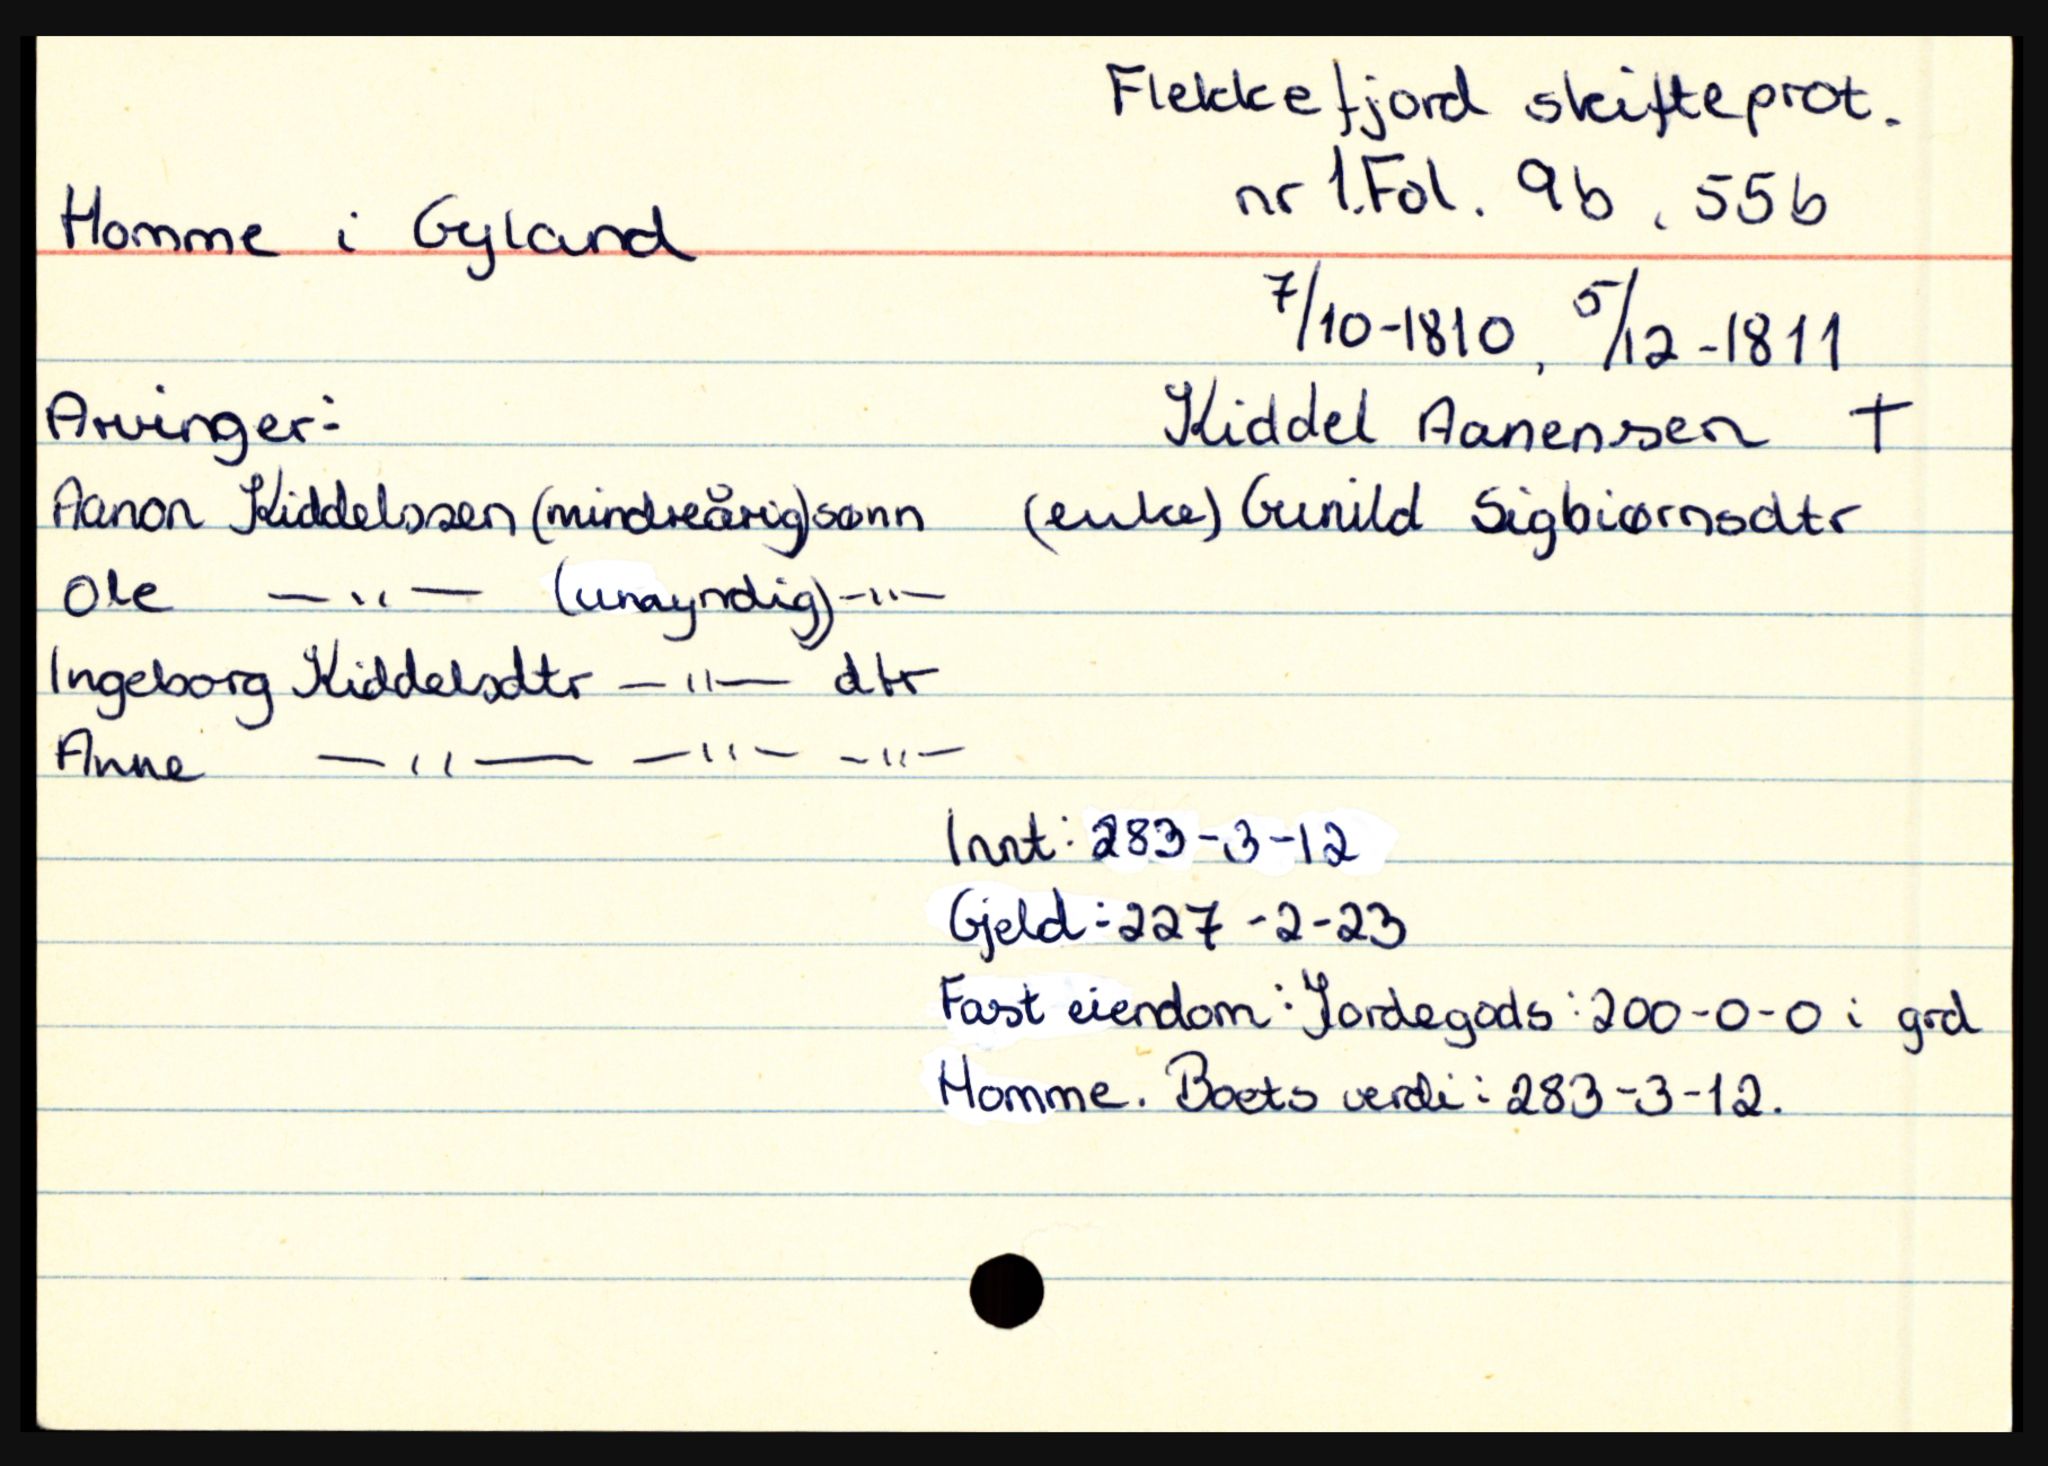 Flekkefjord skifteprot.
nr 1. Fol. 9b, 55b
Homme i Gyland
7/10-1810, 5/12-1811
Arvinger:
Kiddel Aanensen †
Aanon Kiddelssen (mindreårig) sønn
(enke) Gunild Sigbiørnsdtr
Ole —"— (umyndig) -"-
Ingeborg Kiddelsdtr —"— dtr
Anne —"— —"— -"-
Innt: 283-3-12
Gjeld: 227-2-23
Fast eiendom: Jordegods: 200-0-0 i grd
Homme. Boets verdi: 283-3-12.